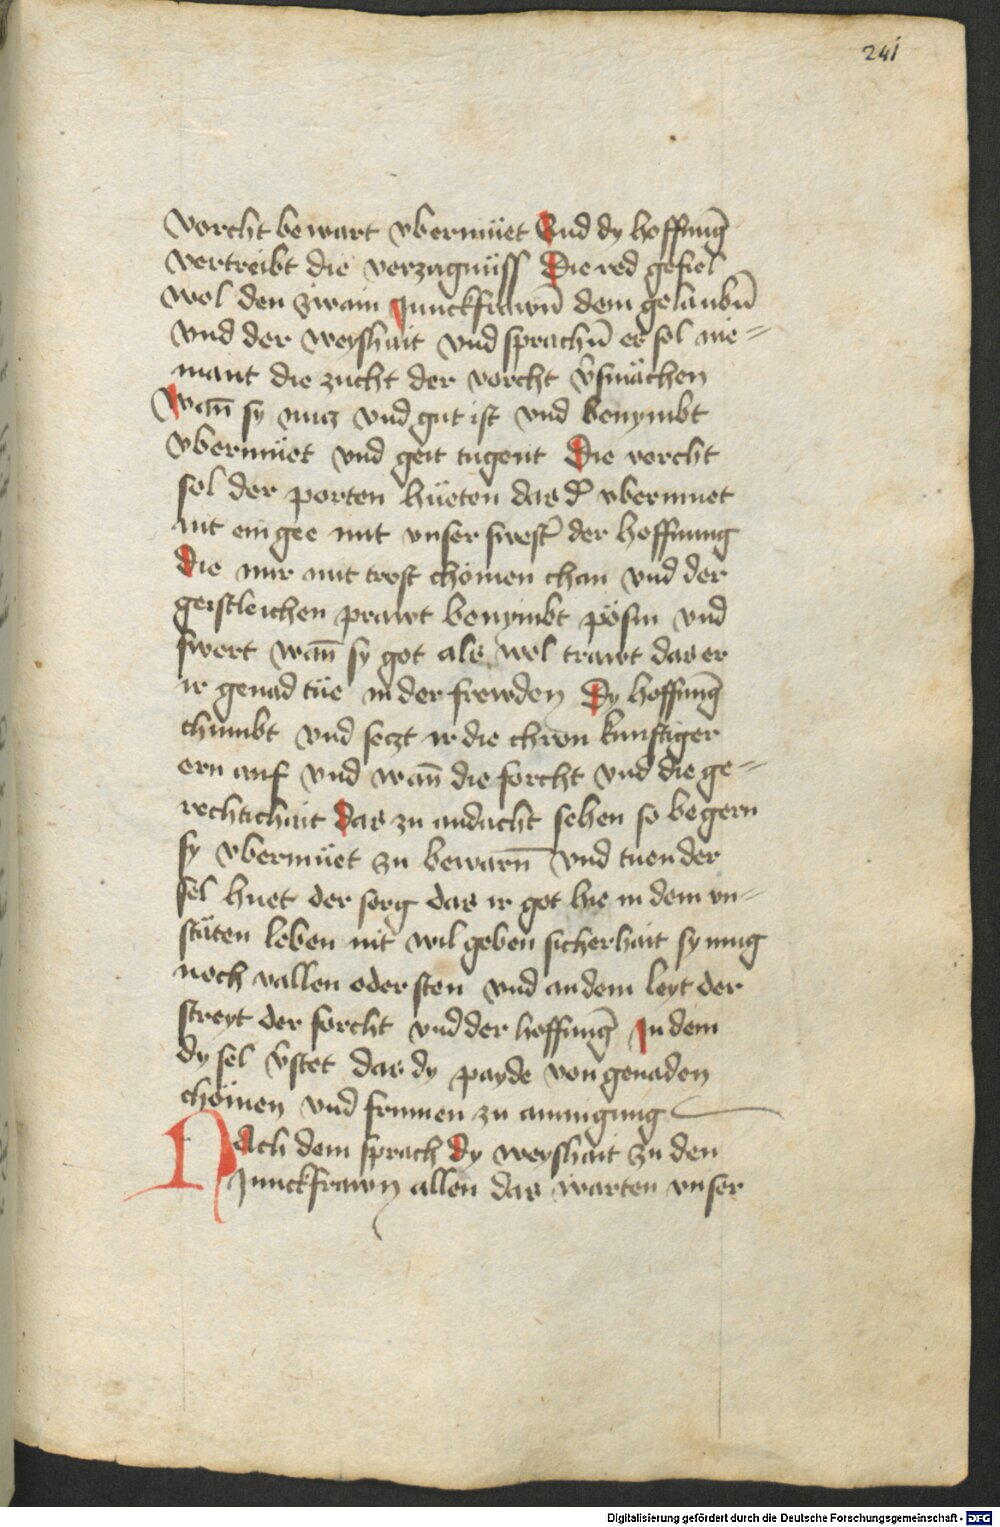 241
vorcht bewart vbermüet Vnd dy hoffnu̅g
vertreibt die verzagnüss Die red gefiel
wol den zwain Junckfrawn̅ dem gelaubn̅
vnd der weyshait vnd sprachn̅ es sol nie=
mant die zucht der vorcht v̅smächen
Wan̅ sy nucz vnd gut ist vnd benymbt
vbermüet vnd geit tugent Die vorcht
sol der porten hüeten das d̅ vbermuet
nit ein gee mit vnser swest̅ der hoffnung
Die nur mit trost chömen chan vnd der
geistleichen prawt benymbt pösin vnd
swert wan̅ sy got als wol trawt das er
ir genad tüe in der frewden Dy hoffnu̅g
chumbt vnd seczt ir die chron kunftiger
ern auf vnd wan̅ die forcht vnd die ge=
rechtichait Das zu andacht sehen so begern
sy vbermüet zu bewarn̅ vnd tuen der
sel huet der sorg das ir got hie in dem vn=
stäten leben nit wil geben sicherhait sy mug
noch vallen oder sten vnd an dem leyt der
streyt der forcht vnd der hoffnu̅g In dem
dy sel v̅stet das dy payde von genaden
chömen vnd frumen zu ainigung
Nach dem sprach dy weyshait zu den
Junckfrawn allen das warten vnser
Digitalisierung gefördert durch die Deutsche Forschungsgemeinschaft - DFG